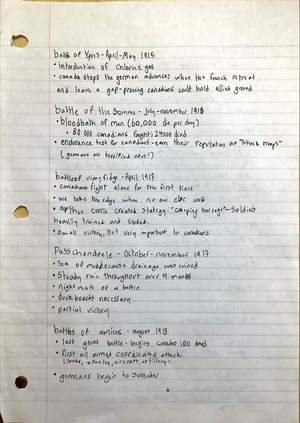 battle of Ypres - April - May 1915
• Introduction of Chlorine gas
• canada stops the german advances when the french retreat
and leave a gap - proving canadians could hold allied ground
battle of the Somme - July - november 1916
• bloodbath of men (60,000 die per day)
• 80 000 canadians fought; 24000 died
• endurance test for canadians - earn their reputation as "shock troops"
(germans are terrified of us!)
battle of vimy ridge - April 1917
• Canadians fight alone for the first time
• we take the ridge when no one else could
• arthur currie created strategy: "creeping barrage" - Soldiers
heavily trained and
• Small victory, but very important to canadians
Passchendaele - October - november 1917
• Sea of mud because drainage was ruined
• Steady rain throughout over 4 months
• nightmare of a battle
• duckboards necessary
• partial victory
battles of amiens - august 1918
• last great battle - begins canadas 100 days
• first all armed coordinated attack
(tanks, infantry, aircraft, artillery)
• germans begin to surrender